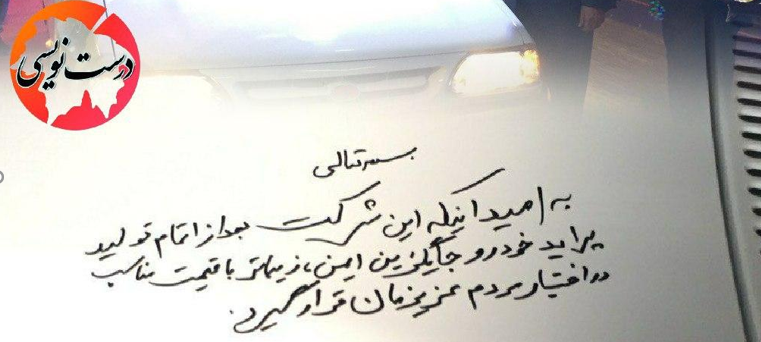 درست نویسی
بسمه تعالی
به امید اینکه این شرکت بعد از اتمام تولید
پراید خودرو جایگزین ایمن، زیباتر با قیمت مناسب
در اختیار مردم عزیزمان قرار گیرد.